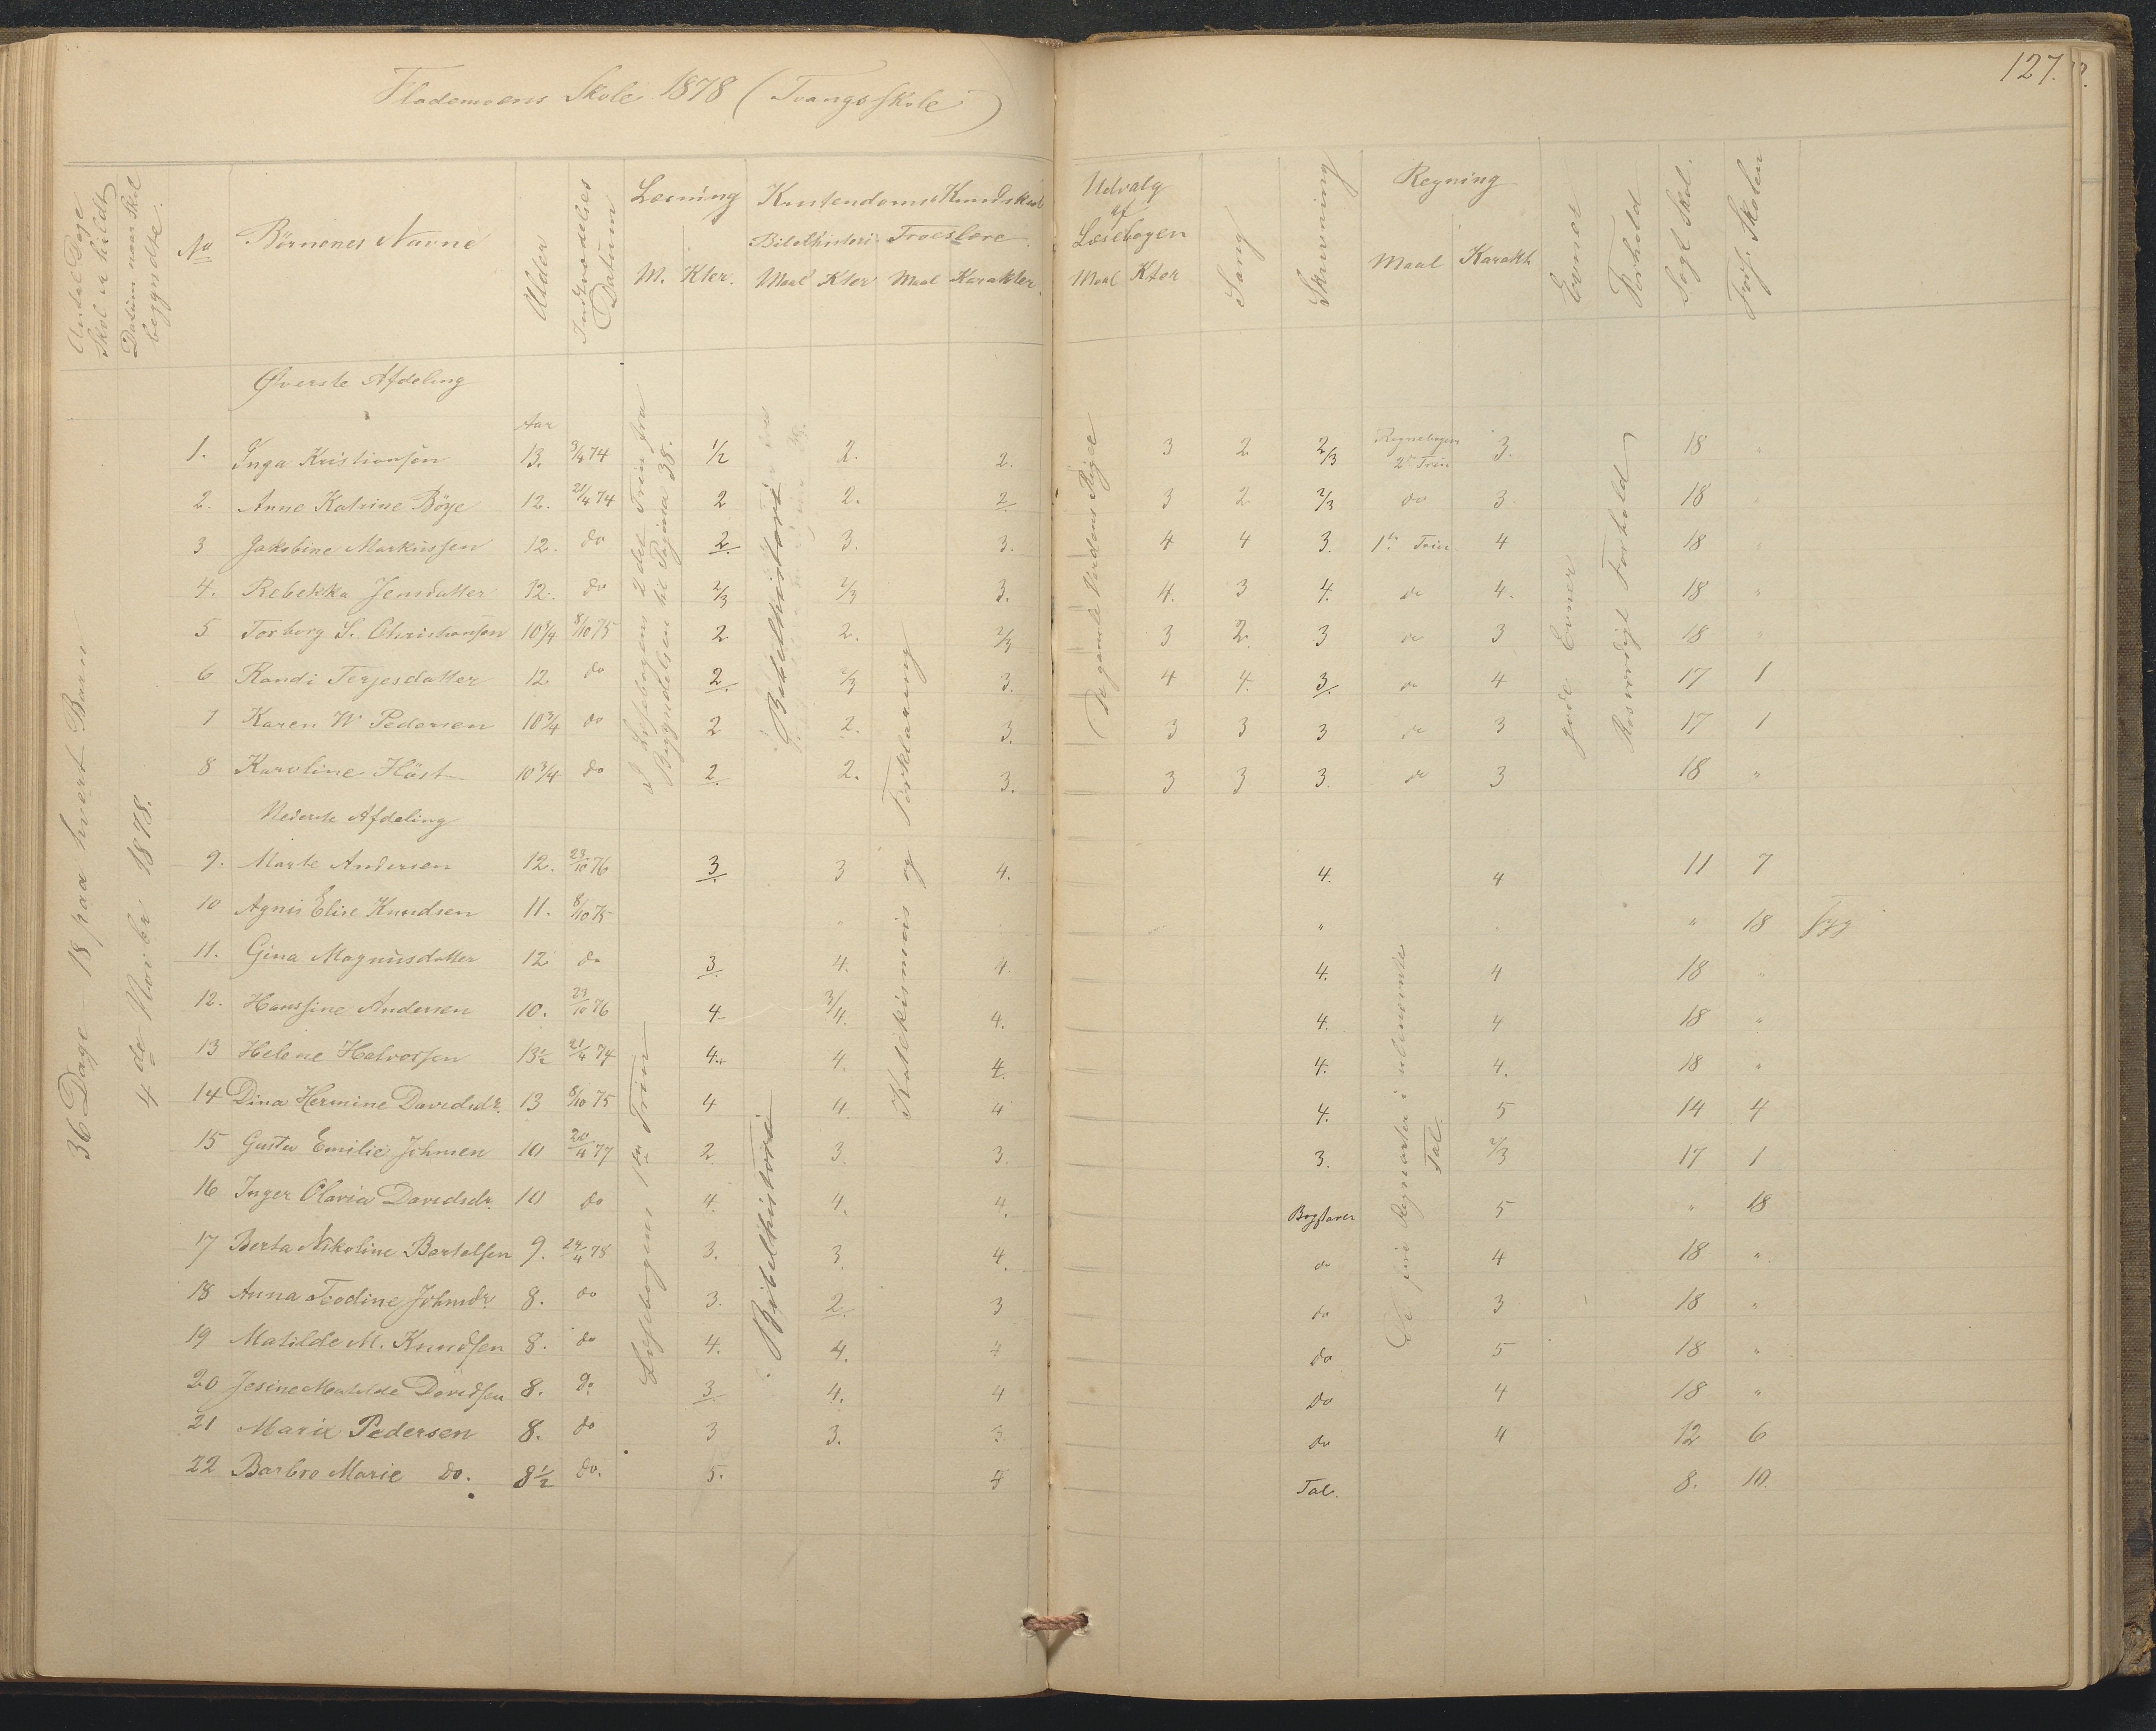 127.
Skole 1878 (Tvangsskole)
Antal Dage Skol er holdt
Datum naar Skol begyndte.
No
Börnenes Navne
Alder
Indtrædelses Datum
Læsning
M. Kter.
Kristendoms Kundskab
Bibelhistori Troeslære
Maal Kter Maal Karakter.
Udvalg af Læsebogen
Maal Kter
Sang
Skrivning
Regning
Maal Karakt
Evner
Forhold
Sögt Skol.
Fors. Skolen
36 Dage 18 paa hvert Barn
4de Novbr 1878.
Øverste Afdeling
Aar
I Læsebogens 2det Trin fra Begyndelsen til Pagina 38.
Bibelhistori
Katekismus og Forklaring
De gamle Verdens Riger
gode Evner
Rosværdigt Forhold
1. Inga Kristiansen 13. 3/4 74 1/2 2. 2. 3 2 2/3 Regnebogen 2det Trin 3. 18 "
2. Anne Katrine Böye 12. 21/4 74 2 2. 2. 3 2 2/3 do 3. 18 "
3 Jakobine Markussen 12. do 2. 3. 3. 4 4 3. 1ste Trin 4 18 "
4. Rebekka Jensdatter 12. do 2/3 2/3 3. 4. 3 4. do 4. 18 "
5 Torborg S. Christiansen 10 3/4 8/10 75 2 2. 2/3 3 2. 3 do 3 18 "
6 Randi Terjesdatter 12 do 2. 2/3 3. 4 4. 3. do 4 17 1
7 Karen W Pedersen 10 3/4 do 2 2. 3. 3 3 3 do 3 17 1
8 Karoline Höst 10 3/4 do 2. 2. 3. 3 3 3. do 3 18 "
Nederste Afdeling
Læsebogens 1ste Trin
Bibelhistori
De fire Regnarter i ubenævnte Tal.
9. Marte Andersen 12. 23/10 76 3. 3 4. 4. 4 11 7
10 Agnis Elise Knudsen 11. 8/10 75 " " 18 syg
11. Gina Magnusdatter 12 do 3. 4. 4. 4. 4 18 "
12. Hanssine Andersen 10. 23/10 76 4 3/4. 4. 4. 4 18 "
13 Helene Halvorsen 13 1/2 21/4 74 4. 4. 4. 4. 4. 18 "
14 Dina Hermine Davidsdr. 13 8/10 75 4 4. 4 4. 5 14 4
15 Gusta Emilie Johnsen 10 20/4 77 2 3. 3. 3. 2/3 17 1
16 Inger Olavia Davidsdr. 10 do 4. 4. 4. Bogstaver 5 " 18
17 Berta Nikoline Bertelsen 9. 24/4 78 3. 3. 4. do 4 18 "
18 Anna Teodine Johnsdr. 8. do 3. 2. 3 do 3 18 "
19 Matilde M. Knudsen 8. do 4. 4. 4 do 5 18 "
20 Jesine Matilde Davidsen 8. do 3. 4. 4 do 4 18 "
21 Marie Pedersen 8. do 3 3. 3 do 4 12 6
22 Barbro Marie do. 8 1/2 do. 5. 4 Tal. 8. 10.